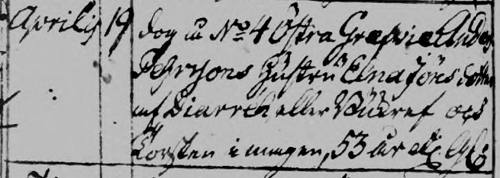 Aprilis 19 dog u No 4 Östra Grefvie Anders
Pehrsons Hustru Elna Jöns dotter
af Diarreh eller Bukref och
Torsten i magen, 53 år